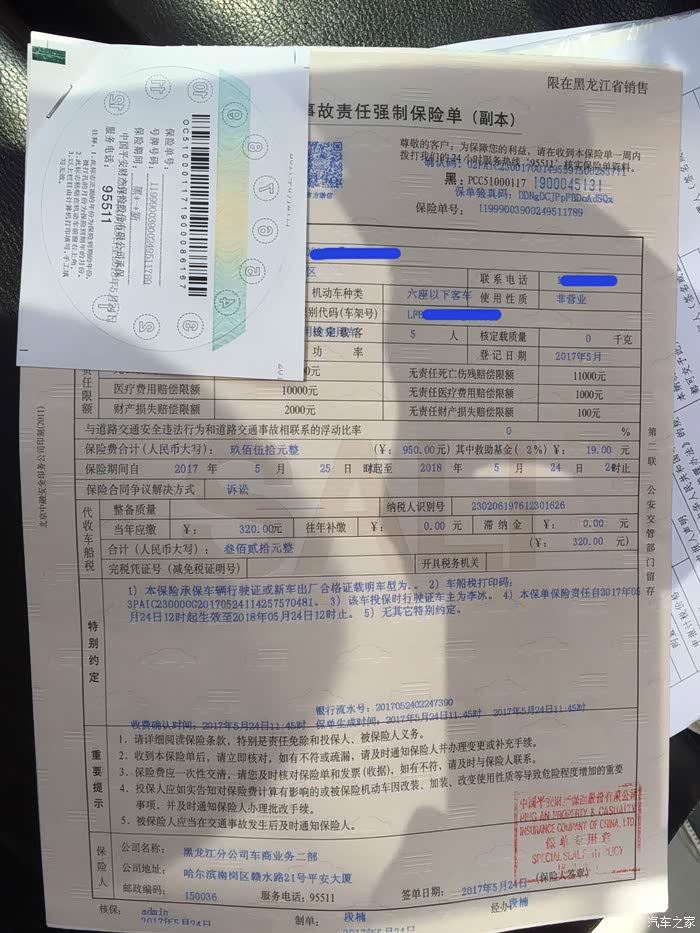 限在黑龙江省销售
事故责任强制保险单（副本）
尊敬的客户：为保障您的利益，请在收到本保险单一周内
拨打我们的24小时服务热线‘95511’核实保险单资料。
黑：PCC51000117 1900045131
保单验真码：DDNgDCJPpFBDoAdSQx
保险单号：11999003900249511789
保险单号：11999003900249511789
号牌号码：
保险期间：
服务电话：95511
QC510001171900086167
区
联系电话
机动车种类 六座以下客车 使用性质 非营业
识别代码(车架号)
核定载客 5 人 核定载质量 0 千克
功率 登记日期 2017年5月
无责任死亡伤残赔偿限额 11000元
医疗费用赔偿限额 10000元 无责任医疗费用赔偿限额 1000元
财产损失赔偿限额 2000元 无责任财产损失赔偿限额 100元
与道路交通安全违法行为和道路交通事故相联系的浮动比率 0 %
保险费合计(人民币大写)：玖佰伍拾元整 (￥：950.00元)其中救助基金(2%)￥：19.00 元
保险期间自 2017 年 5 月 25 日 时起至 2018 年 5 月 24 日 24时止
保险合同争议解决方式 诉讼
代收车船税
整备质量 纳税人识别号 230206197612301626
当年应缴 ￥：320.00元 往年补缴 ￥：0.00 元 滞纳金 ￥：0.00 元
合计(人民币大写)：叁佰贰拾元整 (￥：320.00 元)
完税凭证号(减免税证明号) 开具税务机关
特别约定
1）本保险承保车辆行驶证或新车出厂合格证载明车型为.。 2）车船税打印码：
3PAIC230000C20170524114257570481.。 3）该车投保时行驶证车主为李冰。 4）本保单保险责任自2017年05
月24日12时起生效至2018年05月24日12时止。 5）无其它特别约定。
银行流水号：2017052402247390
收费确认时间：2017年5月24日11:45时 保单生成时间：2017年5月24日11:45时 2017年5月24日11:45时
重要提示
1. 请详细阅读保险条款，特别是责任免除和投保人、被保险人义务。
2. 收到本保险单后，请立即核对，如有不符或疏漏，请及时通知保险人并办理变更或补充手续。
3. 保险费应一次性交清，请您及时核对保险单和发票(收据)，如有不符，请及时与保险人联系。
4. 投保人应如实告知对保险费计算有影响的或被保险机动车因改装、加装、改变使用性质等导致危险程度增加的重要
事项，并及时通知保险人办理批改手续。
5. 被保险人应当在交通事故发生后及时通知保险人。
保险人
公司名称：黑龙江分公司车商业务二部
公司地址：哈尔滨南岗区赣水路21号平安大厦
邮政编码：150036 服务电话：95511 签单日期：2017年5月24日 (保险人签章)
核保：admin 制单：段楠 经办：段楠
2017年5月24日 2017年5月24日
中国平安财产保险股份有限公司
PING AN PROPERTY & CASUALTY
INSURANCE COMPANY OF CHINA, LTD.
保单专用章
SPECIAL SEAL FOR POLICY
第二联 公安交管部门留存
北京中融安全印务公司印制(2011)
汽车之家